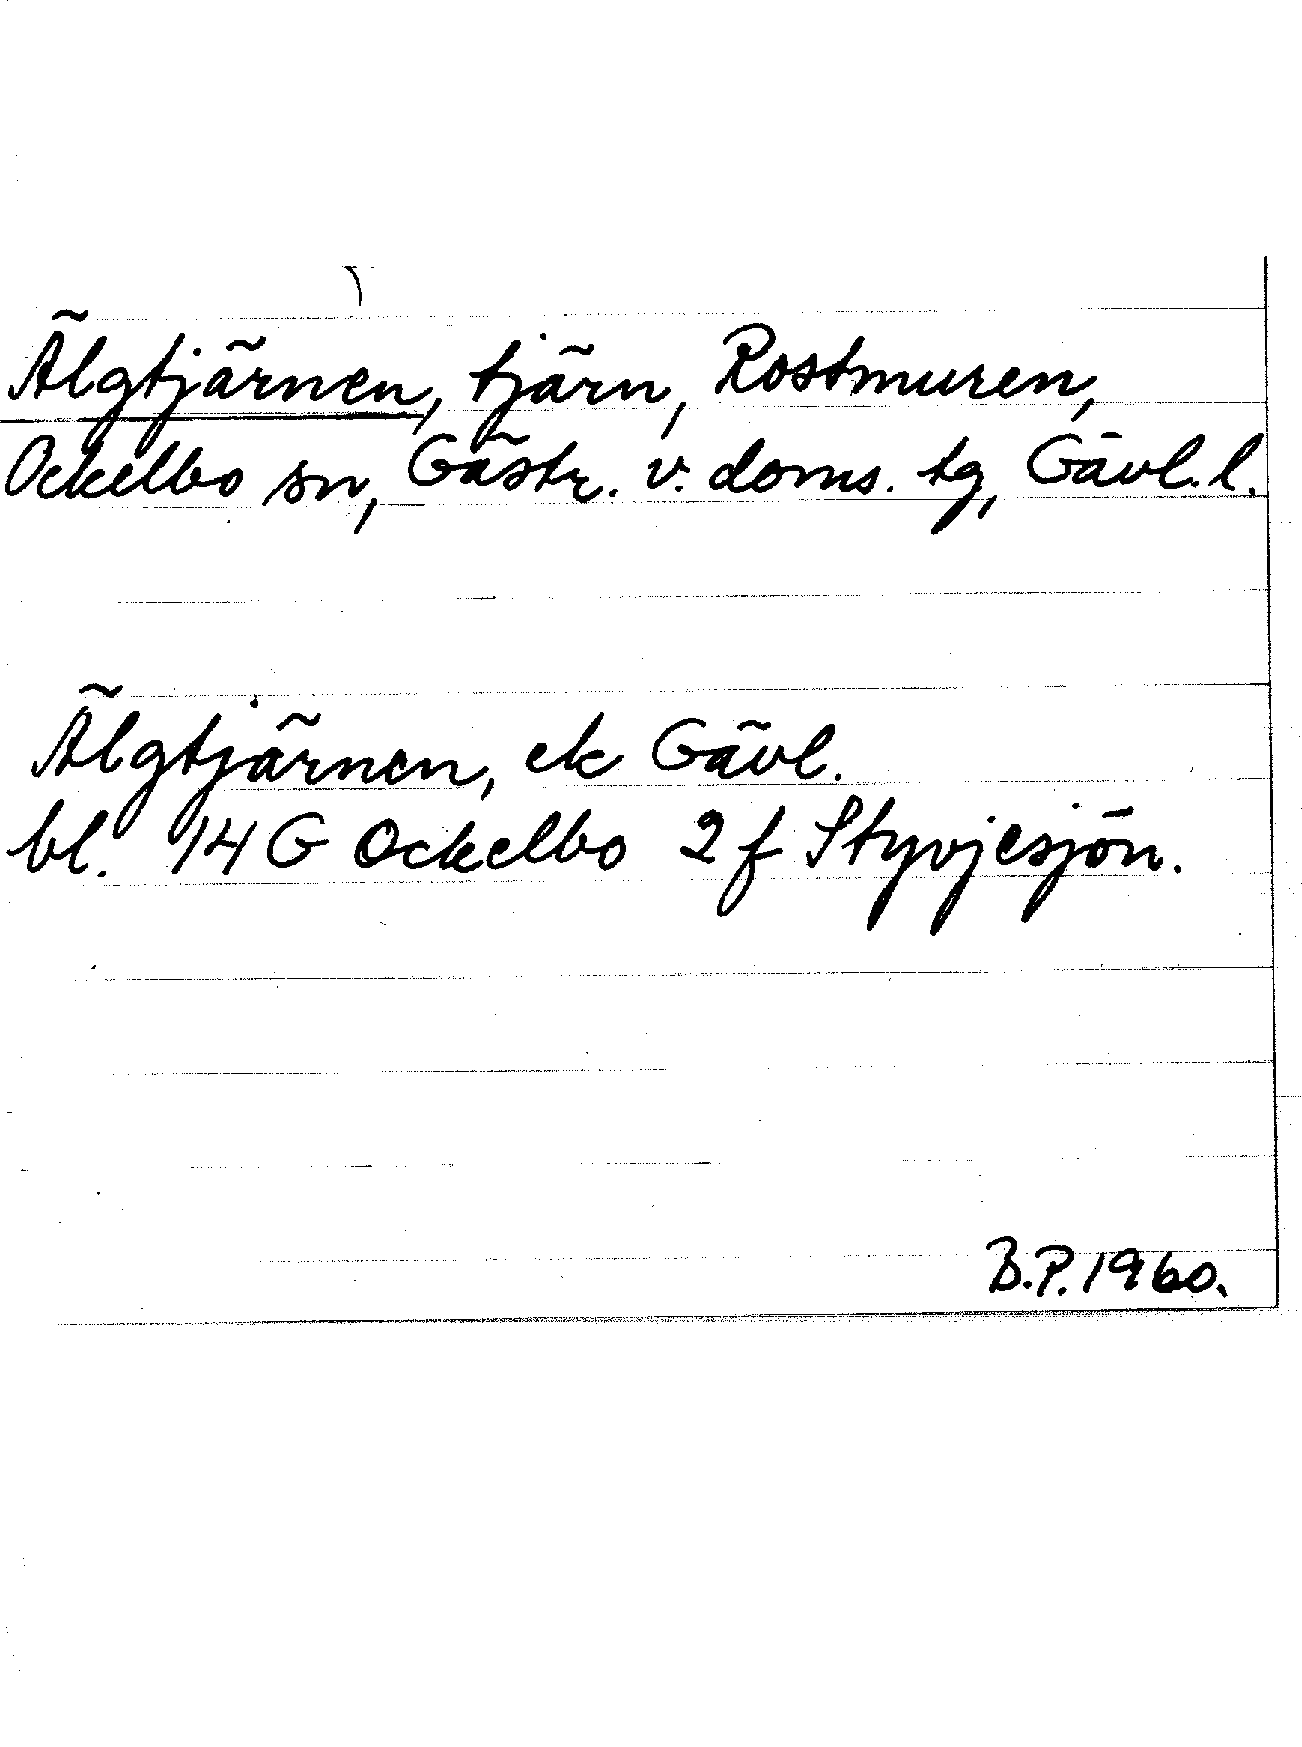 Älgtjärnen, tjärn, Rostmuren,
Ockelbo sn, Gästr. v. doms. tg, Gävl. l.
Älgtjärnen, ek Gävl.
bl. 14 G Ockelbo 2 f Styvjesjön.
B.P. 1960.